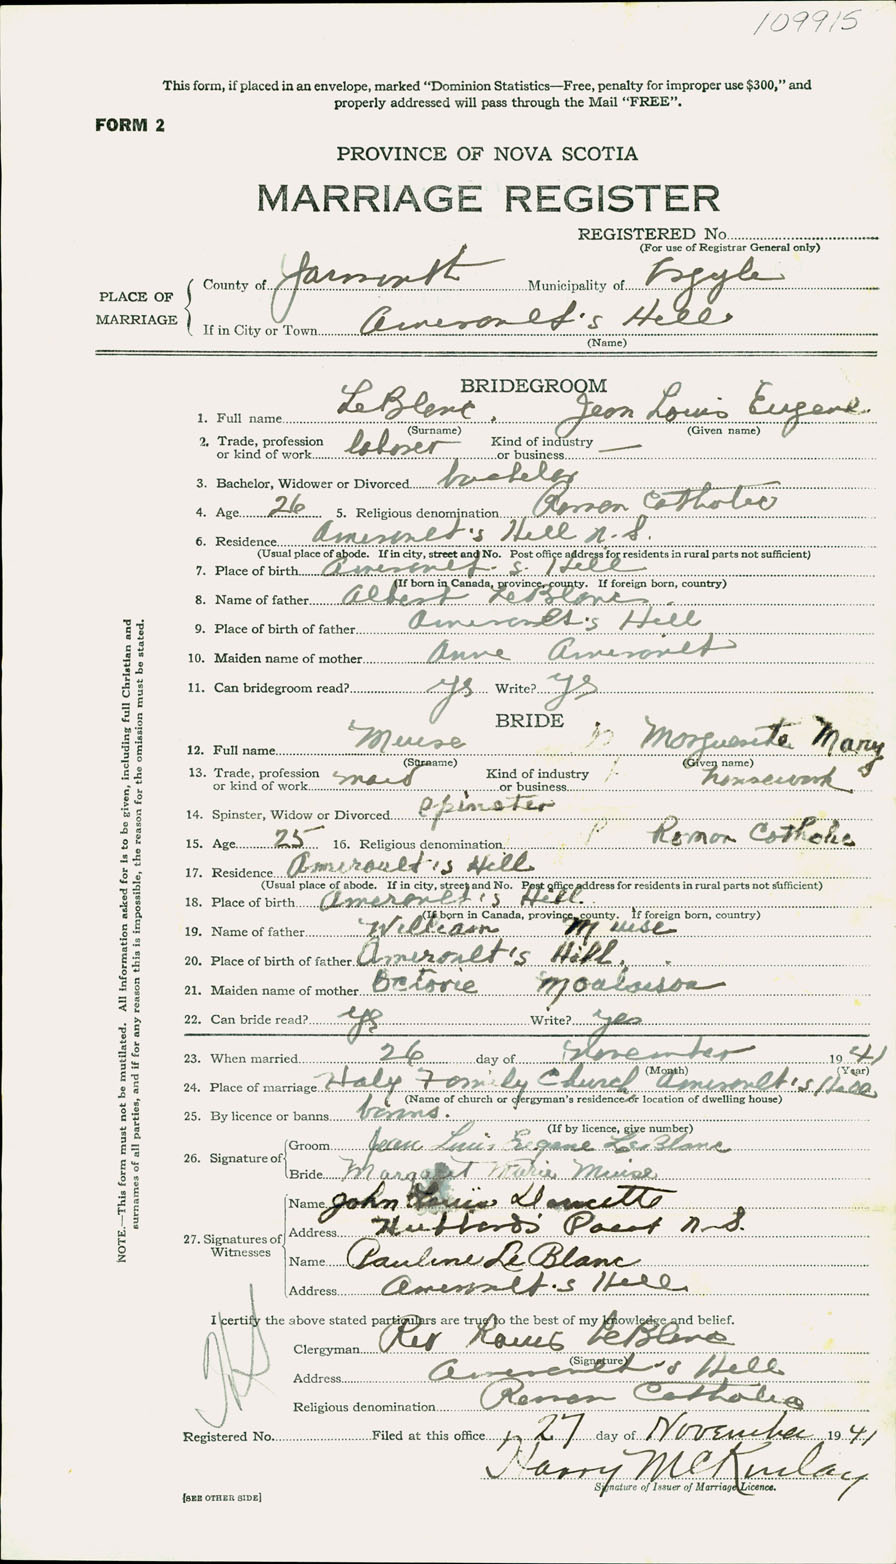 109915
This form, if placed in an envelope, marked "Dominion Statistics—Free, penalty for improper use $300," and
properly addressed will pass through the Mail "FREE".
FORM 2
PROVINCE OF NOVA SCOTIA
MARRIAGE REGISTER
REGISTERED No.
(For use of Registrar General only)
PLACE OF MARRIAGE
County of Yarmouth Municipality of Argyle
If in City or Town Amirault's Hill
(Name)
BRIDEGROOM
1. Full name LeBlanc, Jean Louis Eugene
(Surname) (Given name)
2. Trade, profession or kind of work laborer Kind of industry or business —
3. Bachelor, Widower or Divorced bachelor
4. Age 26 5. Religious denomination Roman Catholic
6. Residence Amirault's Hill N.S.
(Usual place of abode. If in city, street and No. Post office address for residents in rural parts not sufficient)
7. Place of birth Amirault's Hill
(If born in Canada, province, county. If foreign born, country)
8. Name of father Albert LeBlanc
9. Place of birth of father Amirault's Hill
10. Maiden name of mother Anne Amirault
11. Can bridegroom read? yes Write? yes
BRIDE
12. Full name Muise Marguerite Mary
(Surname) (Given name)
13. Trade, profession or kind of work maid Kind of industry or business housework
14. Spinster, Widow or Divorced spinster
15. Age 25 16. Religious denomination Roman Catholic
17. Residence Amirault's Hill
(Usual place of abode. If in city, street and No. Post office address for residents in rural parts not sufficient)
18. Place of birth Amirault's Hill.
(If born in Canada, province, county. If foreign born, country)
19. Name of father William Muise
20. Place of birth of father Amirault's Hill.
21. Maiden name of mother Octavie
22. Can bride read? yes Write? yes
23. When married 26 day of November 1941
(Month) (Year)
24. Place of marriage Holy Family Church Amirault's Hill
(Name of church or clergyman's residence or location of dwelling house)
25. By licence or banns banns.
(If by licence, give number)
26. Signature of
Groom Jean Louis Eugene LeBlanc
Bride Margaret Marie Muise
27. Signatures of Witnesses
Name John Louis Doucette
Address Hubbard's Point N.S.
Name Pauline LeBlanc
Address Amirault's Hill
I certify the above stated particulars are true to the best of my knowledge and belief.
Clergyman Rev LeBlanc
(Signature)
Address Amirault's Hill
Religious denomination Roman Catholic
Registered No. Filed at this office 27 day of November 1941
Harry McKinlay
Signature of Issuer of Marriage Licence.
[SEE OTHER SIDE]
NOTE.—This form must not be mutilated. All information asked for is to be given, including full Christian and
surnames of all parties, and if for any reason this is impossible, the reason for the omission must be stated.